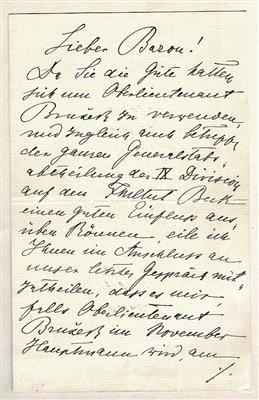 Lieber Baron!
Da Sie die Güte hatten
sich um Oberlieutenant
zu verwenden,
und zugleich auch
der ganzen Generalstabs-
abtheilung der IX Division
auf den Beck
einen guten Einfluss aus-
üben können, eile ich
Ihnen im Anschluss an
unser letztes Gespräch mit-
zutheilen, dass es mir,
falls Oberlieutenant
im November
Hauptmann wird, am
./.